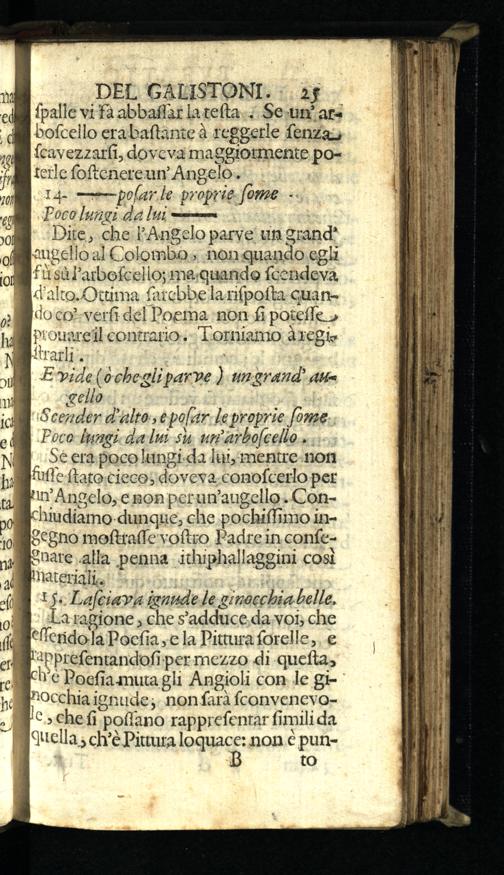 DEL GALISTONI. 25
spalle vi fà abbassar la testa . Se un' ar-
boscello era bastante à reggerle senza
scavezzarsi, doveva maggiormente po-
terle sostenere un' Angelo.
14. —— posar le proprie some
Poco lungi da lui ——
Dite, che l'Angelo parve un grand'
augello al Colombo, non quando egli
fù sù l'arboscello; ma quando scendeva
d'alto. Ottima sarebbe la risposta quan-
do co' versi del Poema non si potesse
provare il contrario. Torniamo à regi-
strarli.
E vide (ò che gli parve) un grand' au-
gello
Scender d'alto, e posar le proprie some
Poco lungi da lui sù un' arboscello.
Se era poco lungi da lui, mentre non
fusse stato cieco, doveva conoscerlo per
un' Angelo, e non per un' augello. Con-
chiudiamo dunque, che pochissimo in-
gegno mostrasse vostro Padre in conse-
gnare alla penna ithiphallaggini così
materiali.
15. Lasciava ignude le ginocchia belle.
La ragione, che s'adduce da voi, che
essendo la Poesia, e la Pittura sorelle, e
rappresentandosi per mezzo di questa,
ch'è Poesia muta gli Angioli con le gi-
nocchia ignude; non sarà sconvenevo-
le, che si possano rappresentar simili da
quella, ch'è Pittura loquace: non è pun-
B to